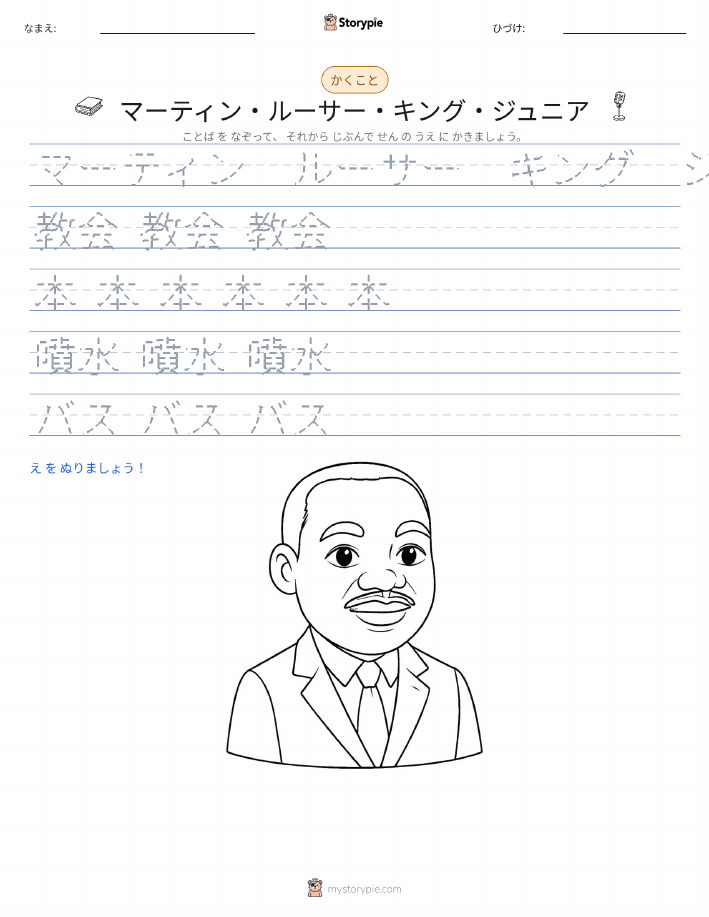 なまえ:
Storypie
ひづけ:
かくこと
マーティン・ルーサー・キング・ジュニア
ことば を なぞって、 それから じぶんで せん の うえ に かきましょう。
マーティン ルーサー キング ジ
教会 教会 教会
本 本 本 本 本 本
噴水 噴水 噴水
バス バス バス
え を ぬりましょう！
mystorypie.com